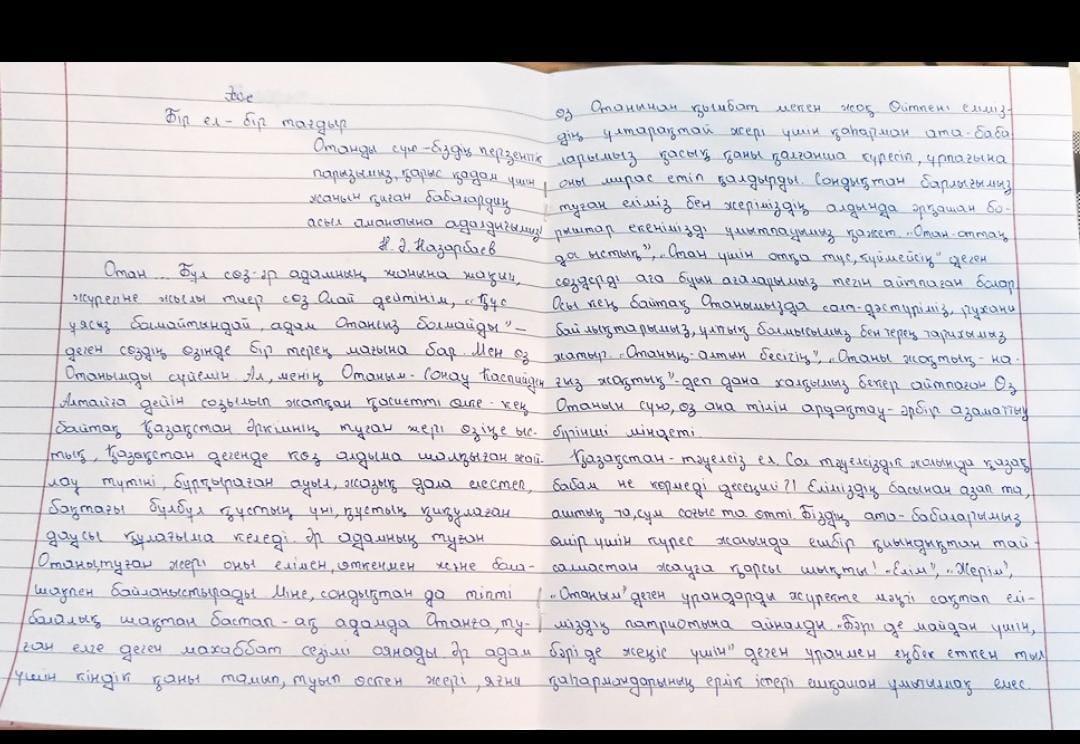 Эссе
Бір ел - бір тағдыр
Отанды сүю - біздің перзенттік
парызымыз, қарыс қадам үшін
жанын қиған бабалардың
асыл аманатына адалдығымыз!
Н. Ә. Назарбаев
Отан... Бұл сөз-әр адамның жанына жақын,
жүрегіне жылы тиер сөз. Олай дейтінім, „Құс
ұясыз болмайтындай, адам Отансыз болмайды" –
деген сөздің өзінде бір терең мағына бар. Мен өз
Отанымды сүйемін. Ал, менің Отаным - Сонау Каспийден
Алтайға дейін созылып жатқан қасиетті өлке - кең
байтақ Қазақстан. Әркімнің туған жері өзіңе ыс-
тық, Қазақстан дегенде көз алдыма шалқыған жай-
лау түтіні, бұрқыраған ауыл, жазық дала елестеп,
бақтағы бұлбұл құстың үні, құстың қиқулаған
даусы құлағыма келеді. Әр адамның туған
Отаны, туған жері оны елімен, өткенмен және бала-
шақпен байланыстырады. Міне, сондықтан да тіпті
балалық шақтан бастап - ақ адамда Отанға, ту-
ған елге деген махаббат сезімі оянады. Әр адам
үшін кіндік қаны тамып, туып өскен жері, яғни
өз Отанынан қымбат мекен жоқ. Өйткені еліміз-
дің ұлтарақтай жері үшін қаһарман ата-баба
ларымыз қасық қаны қалғанша күресіп, ұрпағына
оны мирас етіп қалдырды. Сондықтан барлығымыз
туған еліміз бен жеріміздің алдында әрқашан бо-
рыштар екенімізді ұмытпауымыз қажет. „Отан-оттан
да ыстық", „Отан үшін отқа түс, күймейсің" деген
сөздерді аға буын ағаларымыз тегін айтпаған болар.
Осы кең байтақ Отанымызда салт-дәстүріміз, рухани
байлықтарымыз, ұлтық болмысымыз бен терең тарихымыз
жатыр. „Отаның-алтын бесігің", „Отаны жақтық - на-
ғыз жақтық" - деп дана халқымыз бекер айтпаған. Өз
Отанын сүю, өз ана тілін ардақтау - әрбір азаматтың
бірінші міндеті.
Қазақстан - тәуелсіз ел. Сол тәуелсіздік жолында қазақ
бабам не көрмеді десеңші?! Еліміздің басынан азап та,
аштық та, сұм соғыс та өтті. Біздің ата-бабаларымыз
өмір үшін күрес жолында ешбір қиындықтан тай-
салмастан жауға қарсы шықты! „Елім", „Жерім",
„Отаным" деген ұрандарды жүректе мәңгі сақтап елі-
міздің патриотына айналды. „Бәрі де майдан үшін,
бәрі де жеңіс үшін" деген ұранмен еңбек еткен тыл
қаһармандарының ерлік істері ешқашан ұмытылмақ емес.